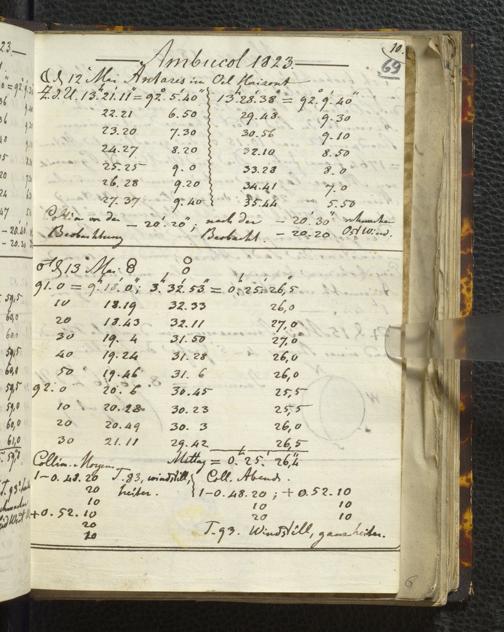 10.
69
Ambucol 1823
☾ d 12 Mai Antares im Ostl Horizont
Z.d.U. 13.21.11" = 92°.5'.40" 13.28.38" = 92.9.40"
22.21 6.50 29.48 9.30
23.20 7.30 30.56 9.10
24.27 8.20 32.10 8.50
25.25 9.0 33.28 8.0
26.28 9.20 34.41 7.0
27.37 9.40 35.44 5.50
Collim vor der — 20".20"; nach der — 20".30"
Beobachtung Beobacht. — 20.20 Ost Wind.
♂ d 13 Mai ☉ ☉
91.0 = 9.18.0; 3.32.53 = 0.25.26,5
10 18.19 32.33 26,0
20 18.43 32.11 27,0
30 19.4 31.50 27,0
40 19.24 31.28 26,0
50 19.46 31.6 26,0
92.0 20.6 30.45 25,5
10 20.28 30.23 25,5
20 20.49 30.3 26,0
30 21.11 29.42 26,5
Collim. Morgen Mittag = 0.25.26,4
1-0.48.20 T.83, windstill, Coll. Abends.
20 heiter. 1-0.48.20; +0.52.10
10 10 10
+0.52.10 20 10
20 T.93. Windstill, ganz heiter.
10